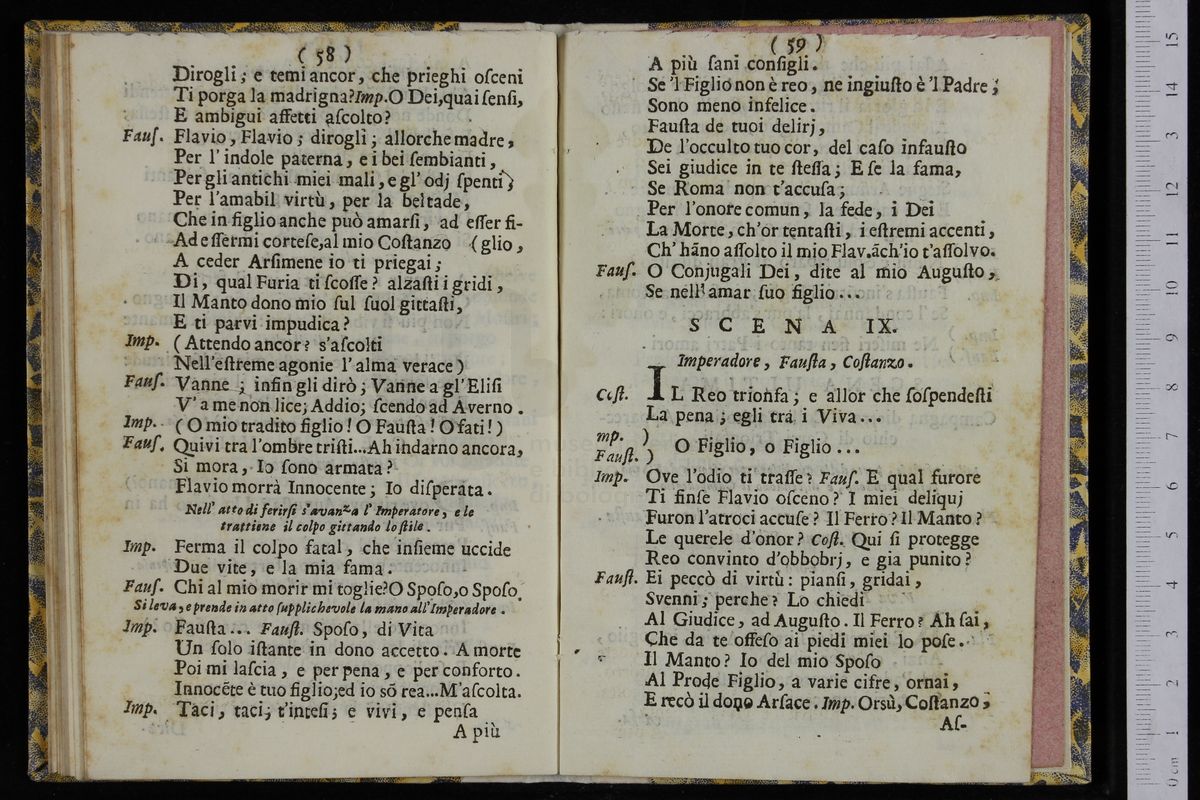 ( 58 )
Dirogli; e temi ancor, che prieghi oſceni
Ti porga la madrigna? Imp. O Dei, quai ſenſi,
E ambigui affetti aſcolto?
Fauſ. Flavio, Flavio; dirogli; allorche madre,
Per l' indole paterna, e i bei ſembianti,
Per gli antichi miei mali, e gl' odj ſpenti;
Per l'amabil virtù, per la beltade,
Che in figlio anche può amarſi, ad eſſer fi-
Ad eſſermi corteſe, al mio Coſtanzo (glio,
A ceder Arſimene io ti priegai;
Di, qual Furia ti ſcoſſe? alzaſti i gridi,
Il Manto dono mio ſul ſuol gittaſti,
E ti parvi impudica?
Imp. (Attendo ancor? s'aſcolti
Nell'eſtreme agonie l'alma verace)
Fauſ. Vanne; infin gli dirò; Vanne a gl' Eliſi
V' a me non lice; Addio; ſcendo ad Averno.
Imp. (O mio tradito figlio! O Fauſta! O fati!)
Fauſ. Quivi tra l'ombre triſti...Ah indarno ancora,
Si mora, Io ſono armata?
Flavio morrà Innocente; Io diſperata.
Nell' atto di ferirſi s'avanza l' Imperatore, e le
trattiene il colpo gittando lo ſtile.
Imp. Ferma il colpo fatal, che inſieme uccide
Due vite, e la mia fama.
Fauſ. Chi al mio morir mi toglie? O Spoſo, o Spoſo.
Si leva, e prende in atto ſupplichevole la mano all'Imperadore.
Imp. Fauſta... Fauſt. Spoſo, di Vita
Un ſolo iſtante in dono accetto. A morte
Poi mi laſcia, e per pena, e per conforto.
Innocẽte è tuo figlio; ed io sõ rea...M'aſcolta.
Imp. Taci, taci; t'inteſi; e vivi, e penſa
A più
( 59 )
A più ſani conſigli.
Se 'l Figlio non è reo, ne ingiuſto è 'l Padre;
Sono meno infelice.
Fauſta de tuoi delirj,
De l'occulto tuo cor, del caſo infauſto
Sei giudice in te ſteſſa; E ſe la fama,
Se Roma non t'accuſa;
Per l'onore comun, la fede, i Dei
La Morte, ch'or tentaſti, i eſtremi accenti,
Ch' hãno aſſolto il mio Flav. ãch'io t'aſſolvo.
Fauſ. O Conjugali Dei, dite al mio Auguſto,
Se nell' amar ſuo figlio...
SCENA IX.
Imperadore, Fauſta, Coſtanzo.
Coſt. IL Reo trionfa; e allor che ſoſpendeſti
La pena; egli tra i Viva...
mp. )
Fauſt. ) O Figlio, o Figlio...
Imp. Ove l'odio ti traſſe? Fauſ. E qual furore
Ti finſe Flavio oſceno? I miei deliquj
Furon l'atroci accuſe? Il Ferro? Il Manto?
Le querele d'onor? Coſt. Qui ſi protegge
Reo convinto d'obbobrj, e gia punito?
Fauſt. Ei peccò di virtù: pianſi, gridai,
Svenni; perche? Lo chiedi
Al Giudice, ad Auguſto. Il Ferro? Ah ſai,
Che da te offeſo ai piedi miei lo poſe.
Il Manto? Io del mio Spoſo
Al Prode Figlio, a varie cifre, ornai,
E recò il dono Arſace. Imp. Orsù, Coſtanzo,
Aſ-
0 cm 1 2 3 4 5 6 7 8 9 10 11 12 13 14 15